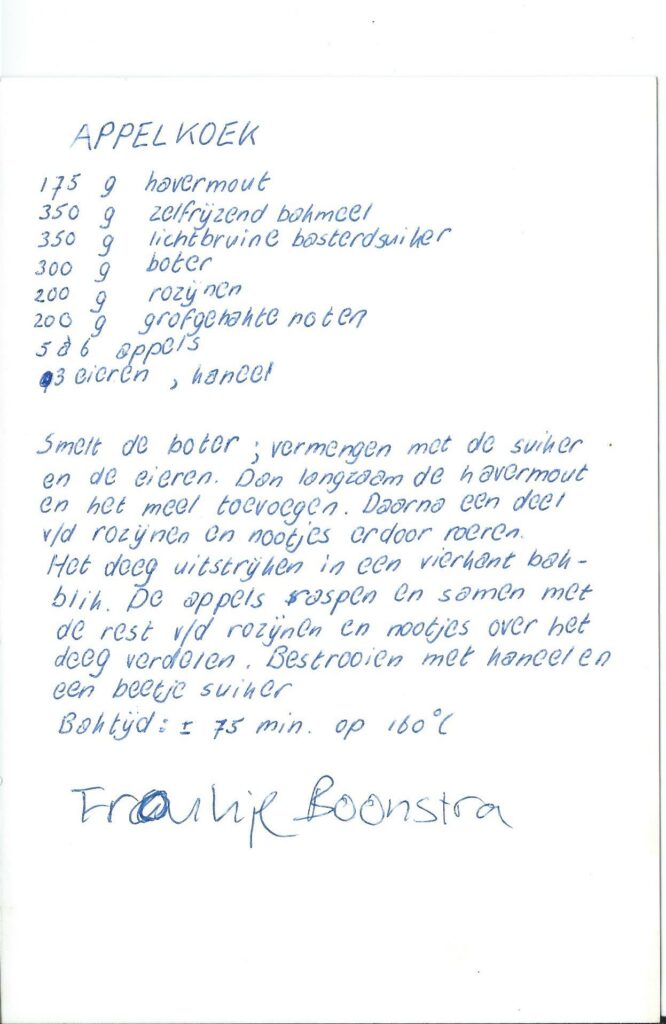 APPELKOEK
175 g havermout
350 g zelfrijzend bakmeel
350 g lichtbruine basterdsuiker
300 g boter
200 g rozijnen
200 g grofgehakte noten
5 à 6 appels
3 eieren, kaneel
Smelt de boter ; vermengen met de suiker
en de eieren. Dan langzaam de havermout
en het meel toevoegen. Daarna een deel
v/d rozijnen en nootjes erdoor roeren.
Het deeg uitstrijken in een vierkant bak-
blik. De appels raspen en samen met
de rest v/d rozijnen en nootjes over het
deeg verdelen. Bestrooien met kaneel en
een beetje suiker
Baktijd: ± 75 min. op 160°C
Froukje Boonstra